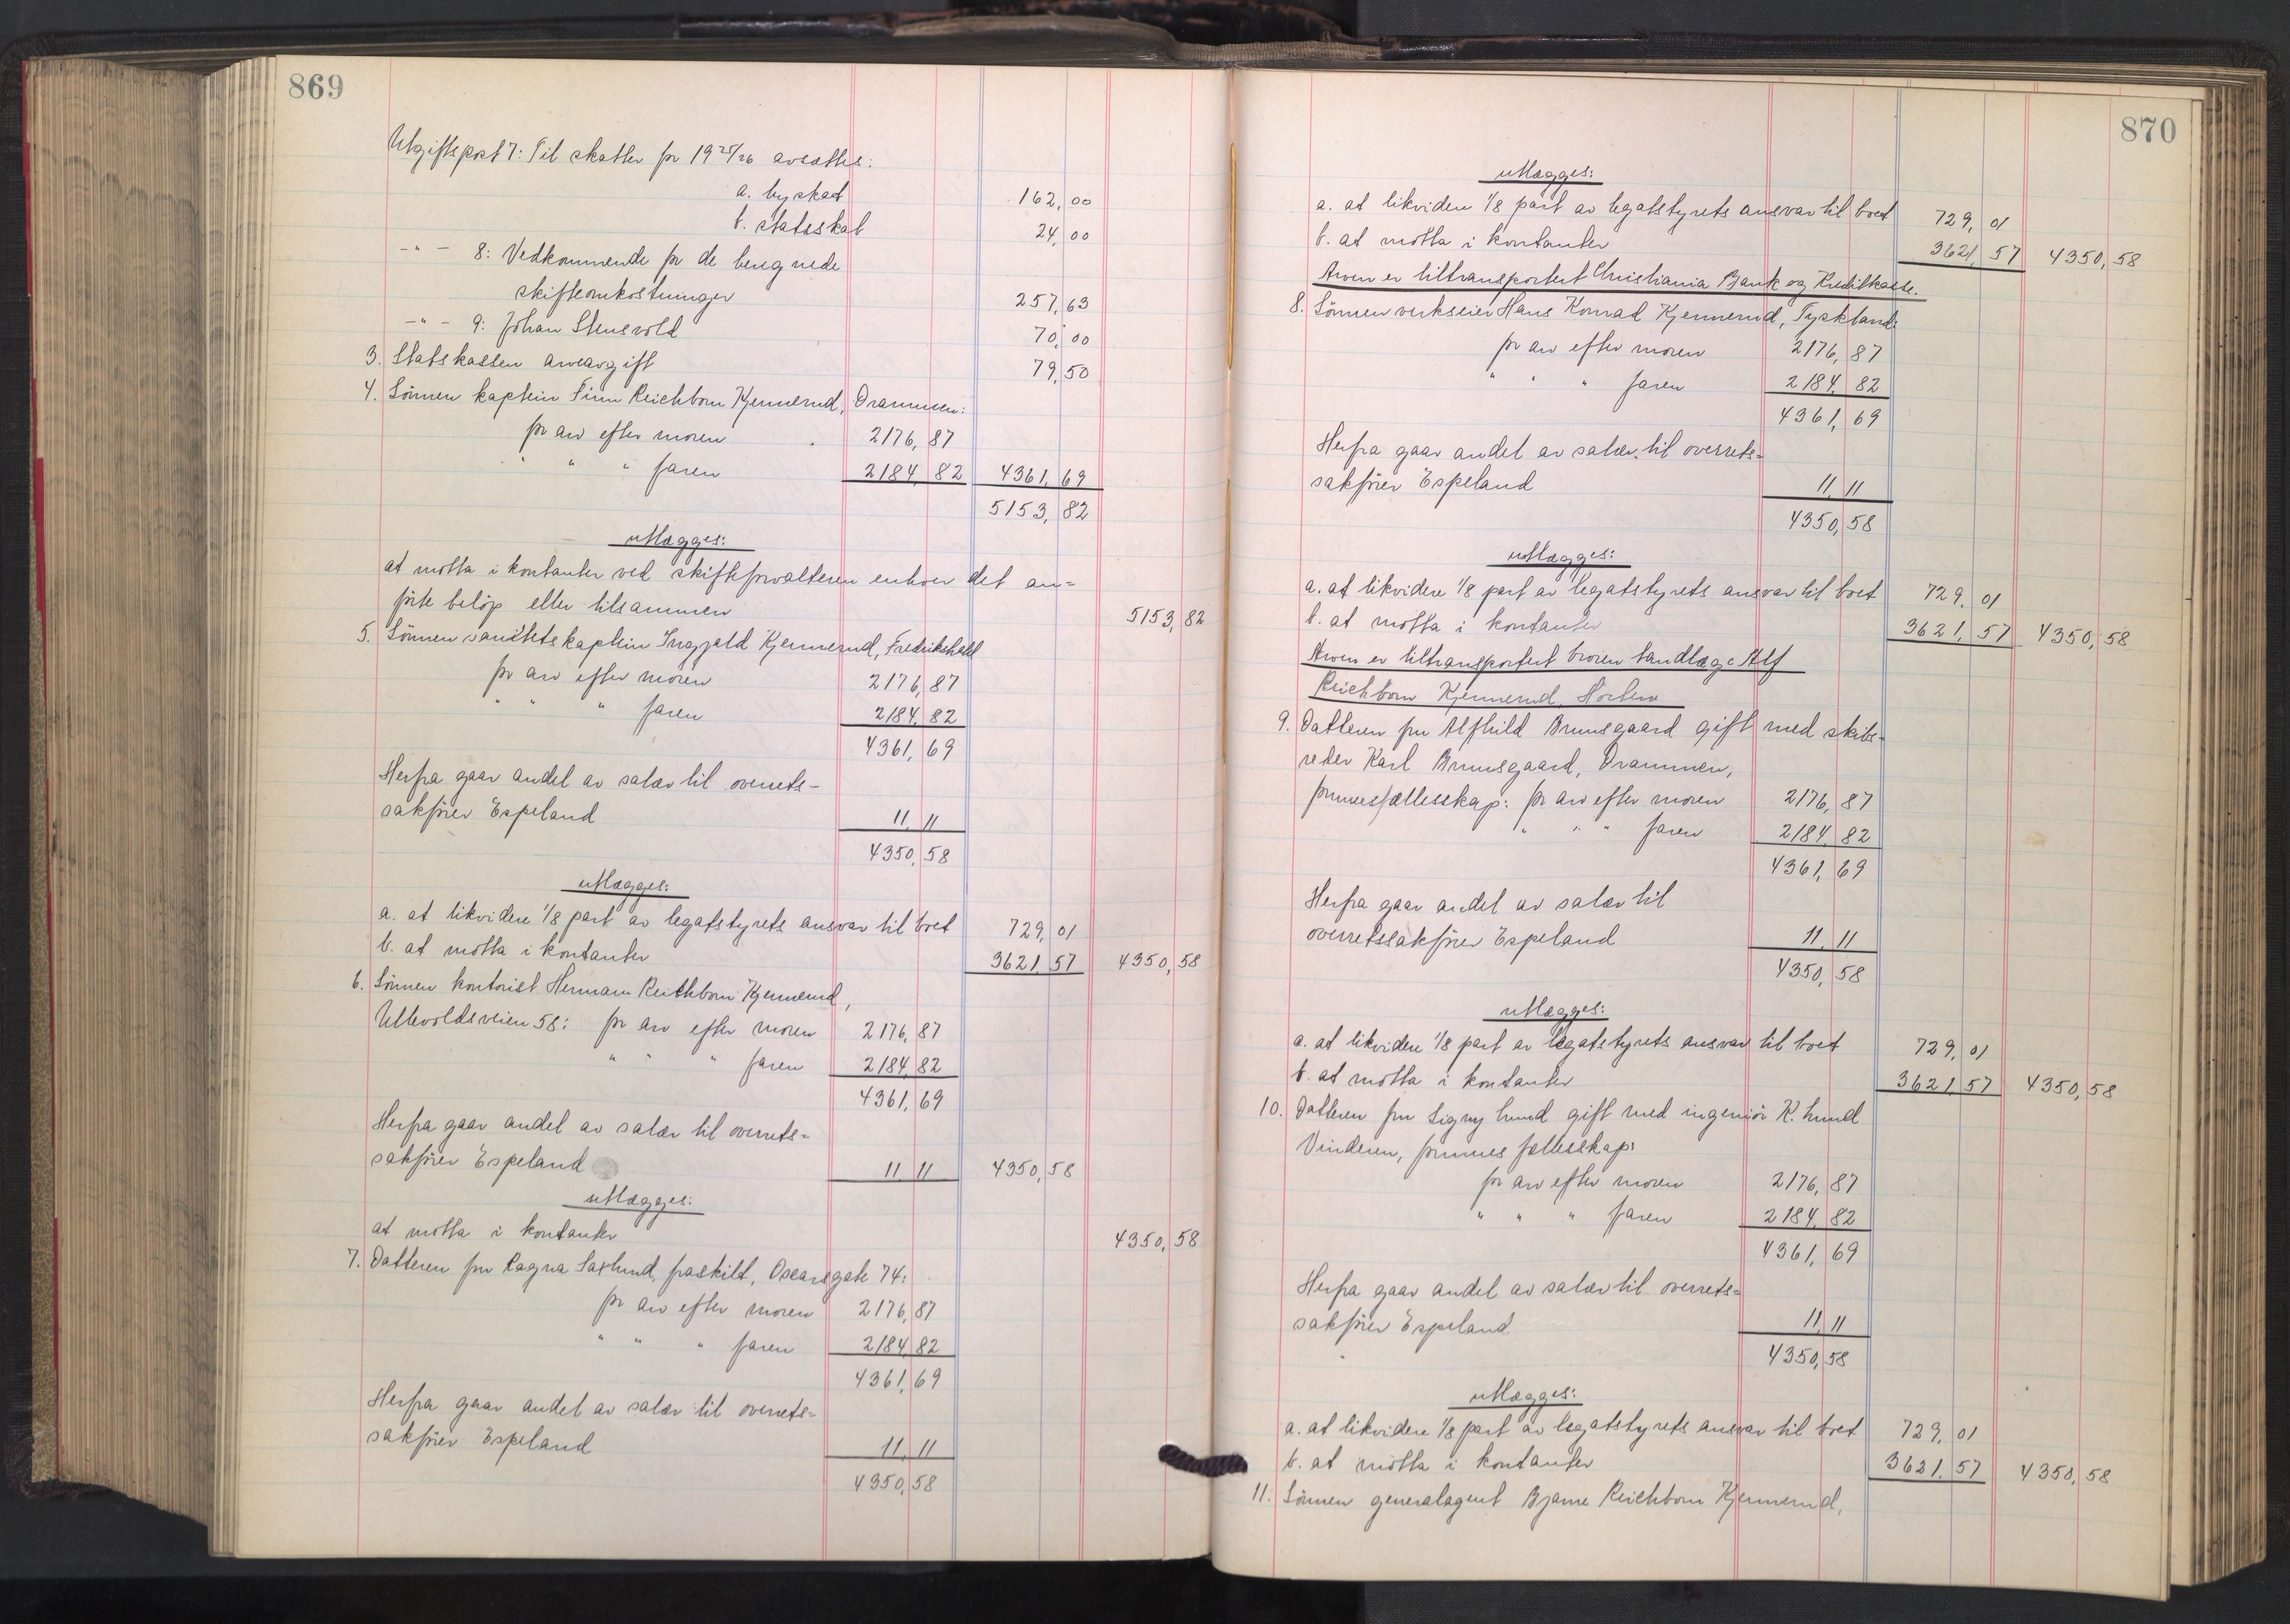 869
Utgiftspost 7: Til skatter for 1925/26 avsættes:
a. byskat 162,00
b. statsskat 24,00
-"- 8: Vedkommende for de beregnede
skifteomkostninger 257,63
-"- 9: Johan Stensvold 70,00
3. Statskassen arveavgift 79,50
4. Sönnen kaptein Finn Reichborn Kjennerud, Drammen:
for arv efter moren 2176,87
" " " faren 2184,82 4361,69
5153,82
utlægges:
at motta i kontanter ved skifteforvalteren enhver det an=
förte belöp eller tilsammen 5153,82
5. Sönnen sanitetskaptein Ingjald Kjennerud, Fredrikshald
for arv efter moren 2176,87
" " " faren 2184,82
4361,69
Herfra gaar andel av salær til overrets-
sakförer Espeland 11,11
4350,58
utlægges:
a. at likvidere 1/8 part av legatstyrets ansvar til boet 729,01
b. at motta i kontanter 3621,57 4350,58
6. Sönnen kontorist Hermann Reichborn Kjennerud,
Ullevoldsveien 58: for arv efter moren 2176,87
" " " faren 2184,82
4361,69
Herfra gaar andel av salær til overrets=
sakförer Espeland 11,11 4350,58
utlægges:
at motta i kontanter 4350,58
7. Datteren fru Ragna Saxlund, fraskilt, Oscarsgate 74:
for arv efter moren 2176,87
" " " faren 2184,82
4361,69
Herfra gaar andel av salær til overrets=
sakförer Espeland 11,11
4350,58
870
utlægges:
a. at likvidere 1/8 part av legatstyrets ansvar til boet 729,01
b. at motta i kontanter 3621,57 4350,58
Arven er tiltransportert Christiania Bank og Kreditkasse.
8. Sönnen verkseier Hans Konrad Kjennerud, Tyskland:
for arv efter moren 2176,87
" " " faren 2184,82
4361,69
Herfra gaar andel av salær til overrets=
sakförer Espeland 11,11
4350,58
utlægges:
a. at likvidere 1/8 part av legatstyrets ansvar til boet 729,01
b. at motta i kontanter 3621,57 4350,58
Arven er tiltransportert broren tandlæge Alf
Reichborn Kjennerud, Horten
9. Datteren fru Alfhild Bruusgaard gift med skibs=
reder Karl Bruusgaard, Drammen,
formuesfællesskap: for arv efter moren 2176,87
" " " faren 2184,82
4361,69
Herfra gaar andel av salær til
overretssakförer Espeland 11,11
4350,58
utlægges:
a. at likvidere 1/8 part av legatstyrets ansvar til boet 729,01
b. at motta i kontanter 3621,57 4350,58
10. Datteren fru Signy Lund gift med ingeniör K. Lund
Vinderen, formues fællesskap:
for arv efter moren 2176,87
" " " faren 2184,82
4361,69
Herfra gaar andel av salær til overrets=
sakförer Espeland 11,11
4350,58
utlægges:
a. at likvidere 1/8 part av legatstyrets ansvar til boet 729,01
b. at motta i kontanter 3621,57 4350,58
11. Sönnen generalagent Bjarne Reichborn Kjennerud,